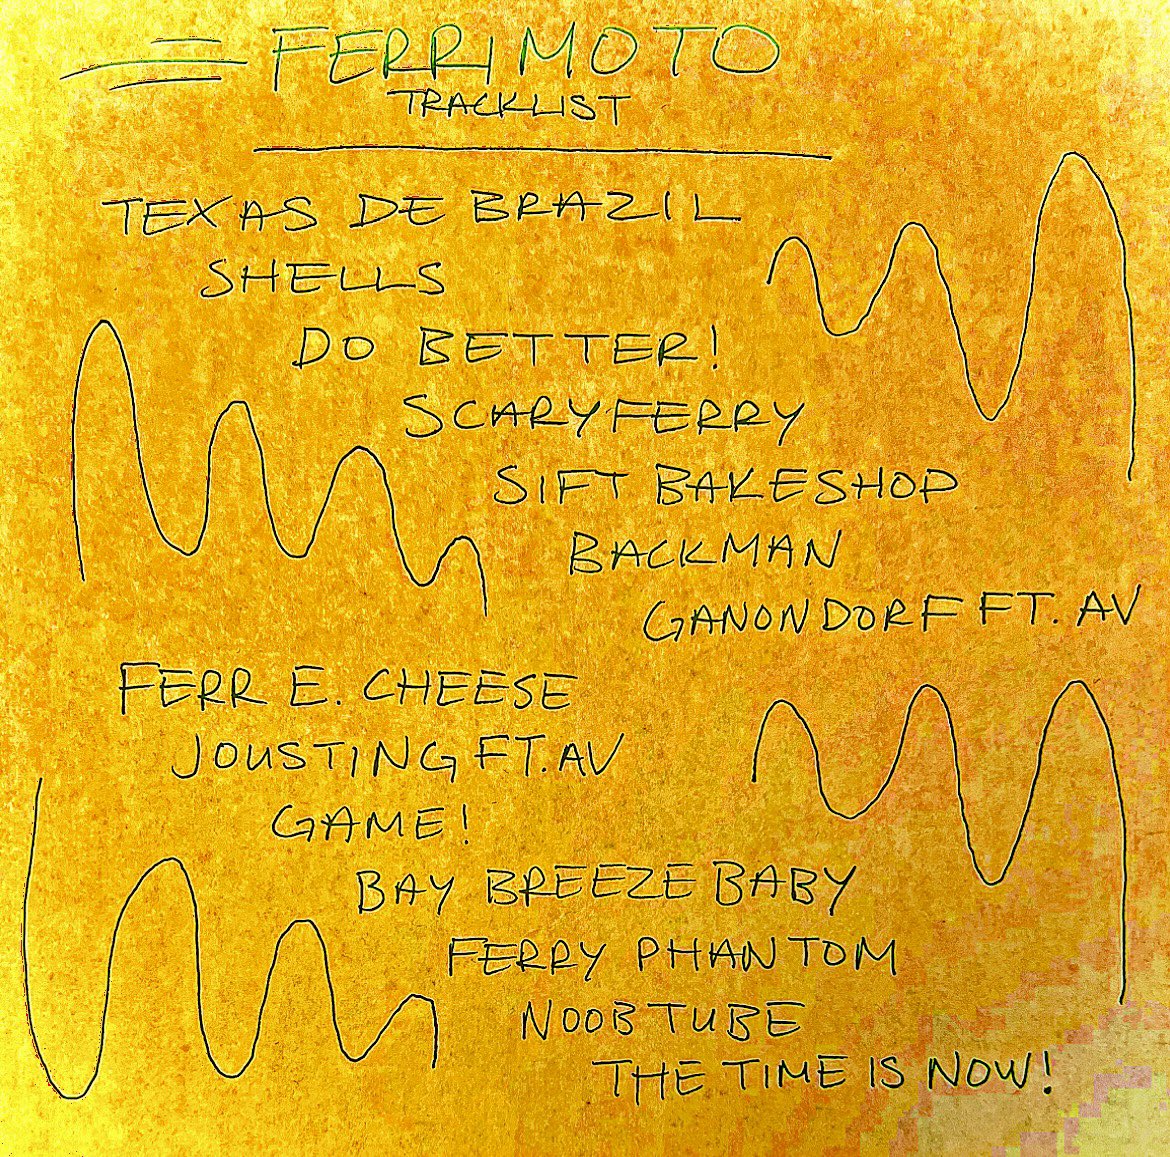 FERRIMOTO
TRACKLIST
TEXAS DE BRAZIL
SHELLS
DO BETTER!
SCARYFERRY
SIFT BAKESHOP
BACKMAN
GANONDORF FT. AV
FERR E. CHEESE
JOUSTING FT. AV
GAME!
BAY BREEZE BABY
FERRY PHANTOM
NOOB TUBE
THE TIME IS NOW!